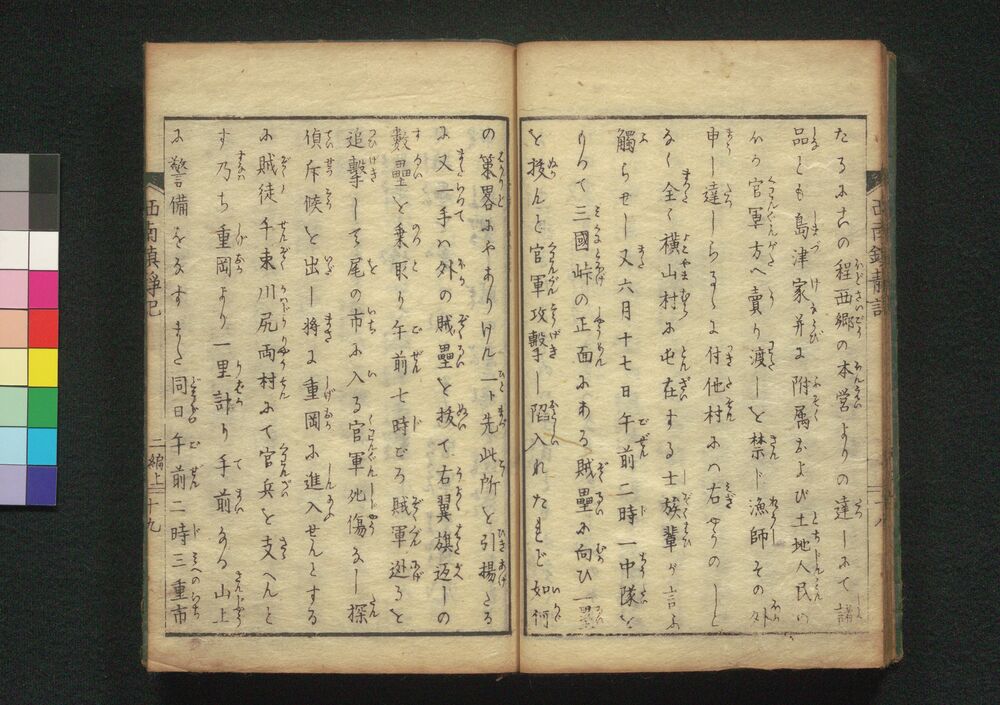 たるに此の程西郷の本営よりの達しにて諸
品とも島津家并に附属および土地人民の
外の官軍方へ賣り渡しを禁ド漁師その外
申し達しらるゝに付他村にハ右やうのしと
なく全く横山村に屯在する士族輩が言ふ
觸らせし又六月十七日午前二時一中隊を
もつて三國峠の正面にある賊壘に向ひ一壘
を抜んと官軍攻撃し陷入れたれど如何
の策畧にやありけん一ト先此所を引揚たる
に又一手ハ外の賊壘を抜て右翼旗返しの
數壘を乗取り午前七時ごろ賊軍遁るを
追撃して尾の市に入る官軍死傷なし探
偵斥候を出し将に重岡に進入せんとする
に賊徒千束川尻両村にて官兵を支へんと
す乃ち重岡より一里計り手前なる山上
に警備をなすまた同日午前二時三重市
西南鎮静記
二編上
十九